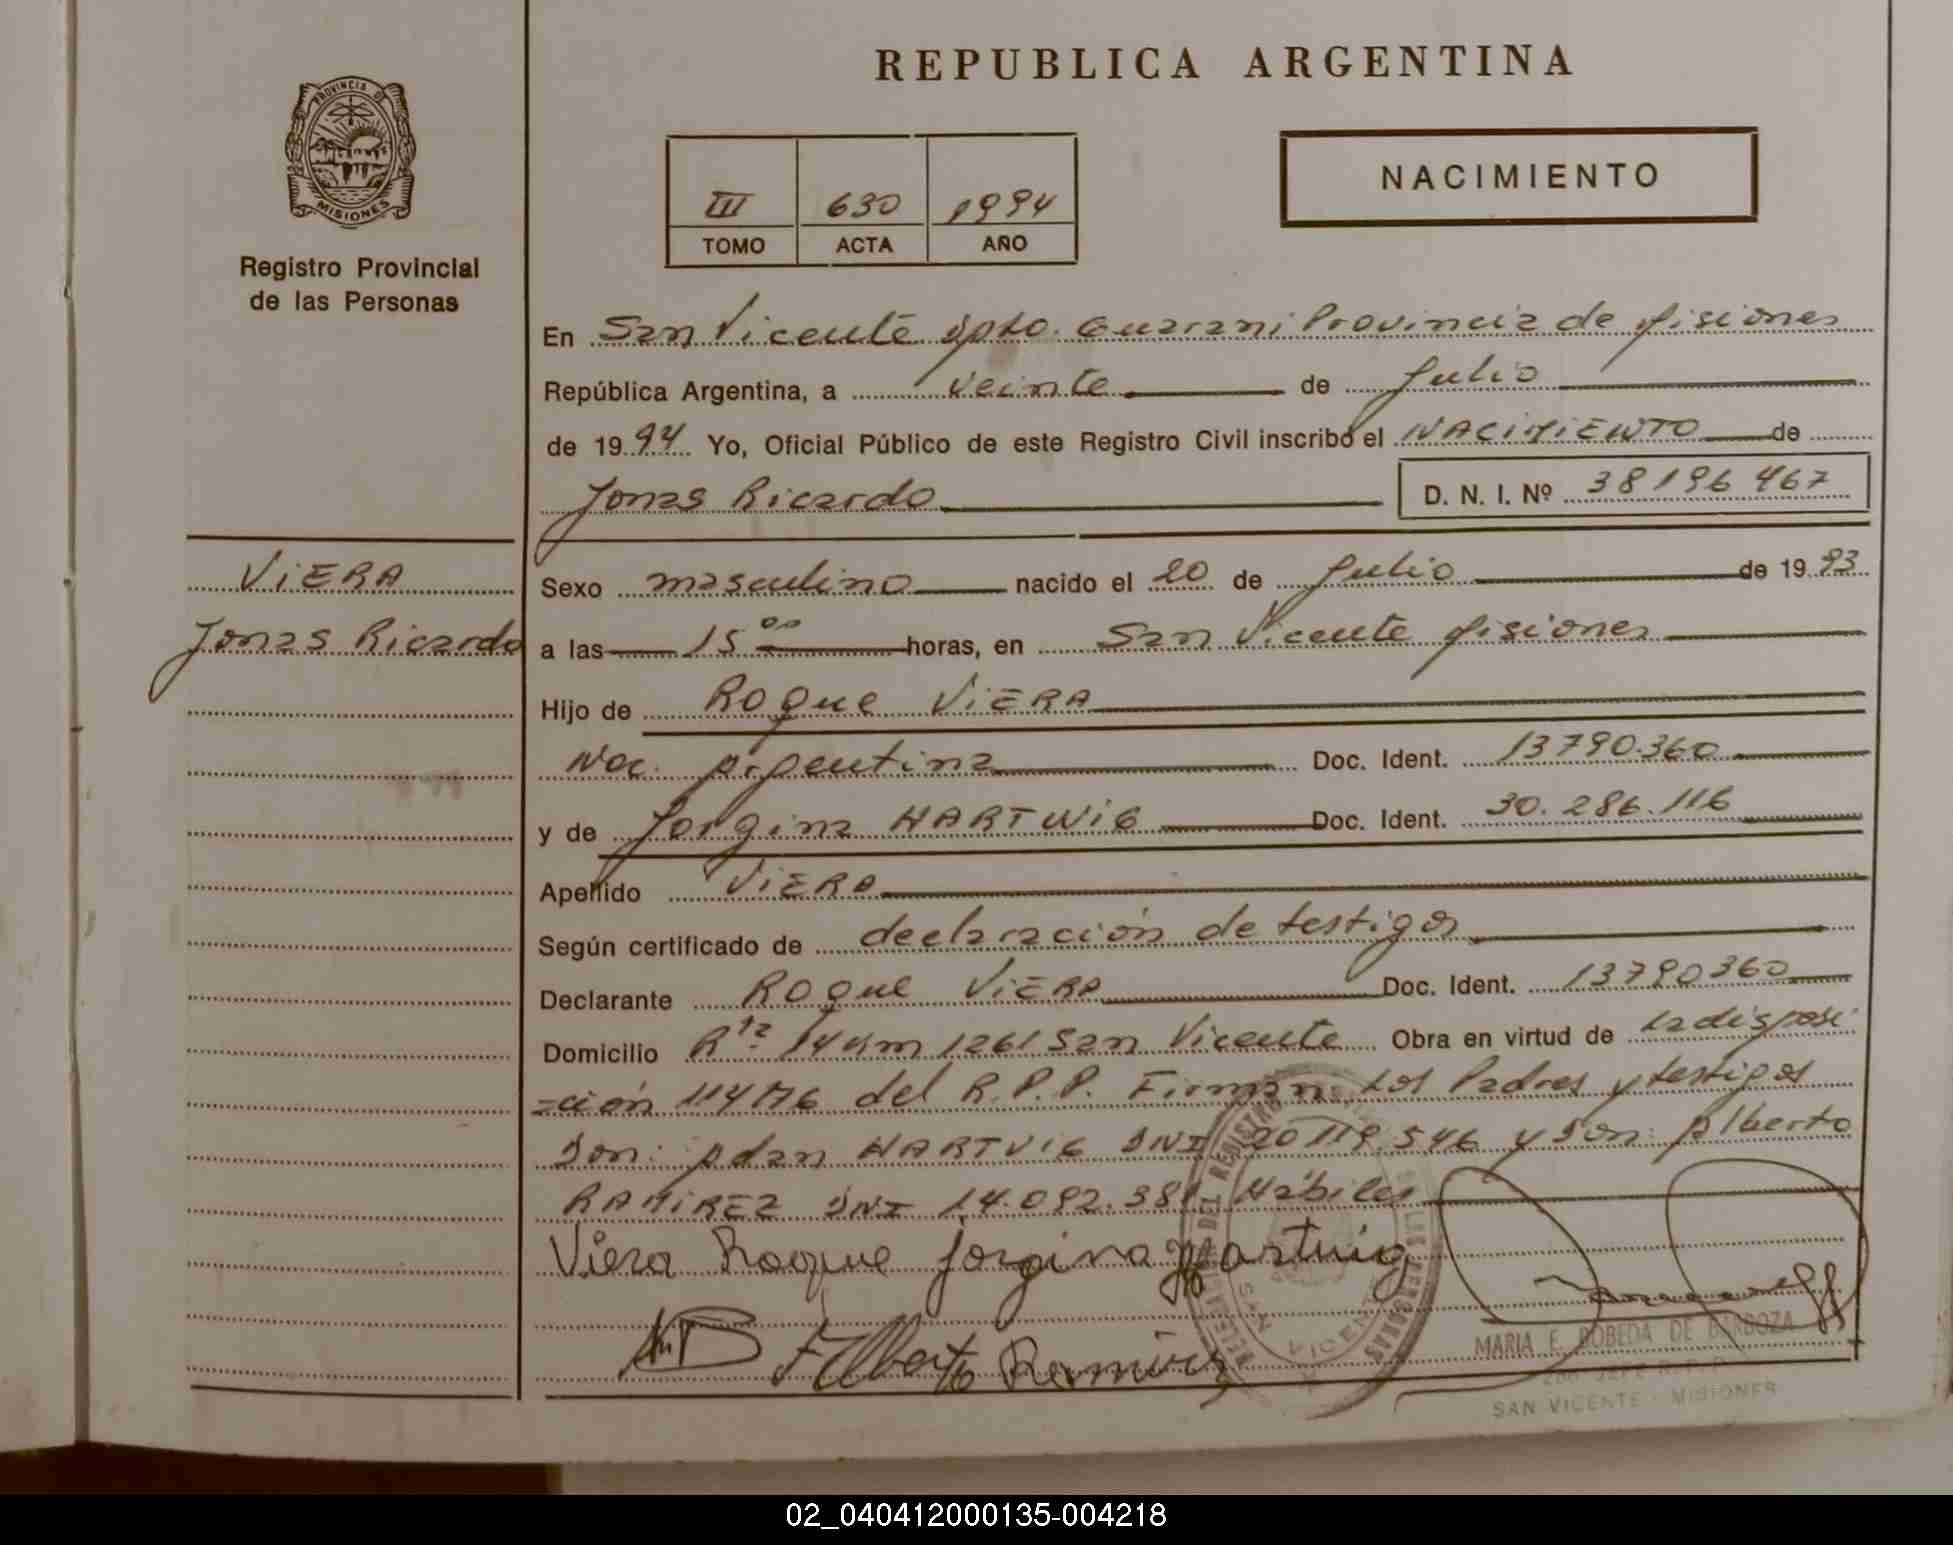 REPUBLICA ARGENTINA
PROVINCIA DE
MISIONES
Registro Provincial
de las Personas
III 630 1994
TOMO ACTA AÑO
NACIMIENTO
En San Vicente Dpto. Guarani Provincia de Misiones
República Argentina, a veinte de Julio
de 1994 Yo, Oficial Público de este Registro Civil inscribo el NACIMIENTO de
Jonas Ricardo D. N. I. Nº 38196467
VIERA
Jonas Ricardo
Sexo masculino nacido el 20 de Julio de 1993
a las 15 00 horas, en San Vicente Misiones
Hijo de Roque VIERA
Nac. Argentina Doc. Ident. 13790.360
y de Jorgina HARTWIG Doc. Ident. 30.286.116
Apellido VIERA
Según certificado de declaración de testigos
Declarante Roque VIERA Doc. Ident. 13790360
Domicilio Rta 14 Km 1261 San Vicente Obra en virtud de la disposi
=ción 114/76 del R.P.P. Firman Los Padres y testigos
Don: Adan HARTVIG DNI 20119.546 y Don: Alberto
RAMIREZ DNI 14.092.381 Hábiles
Viera Roque Jorgina Hartwig
Alberto Ramirez
DEL REGISTRO
DE LAS PERSONAS
SAN VICENTE
MARIA E. BOBEDA DE BARBOZA
2do JEFE R.P.P.
SAN VICENTE - MISIONES
02_040412000135-004218